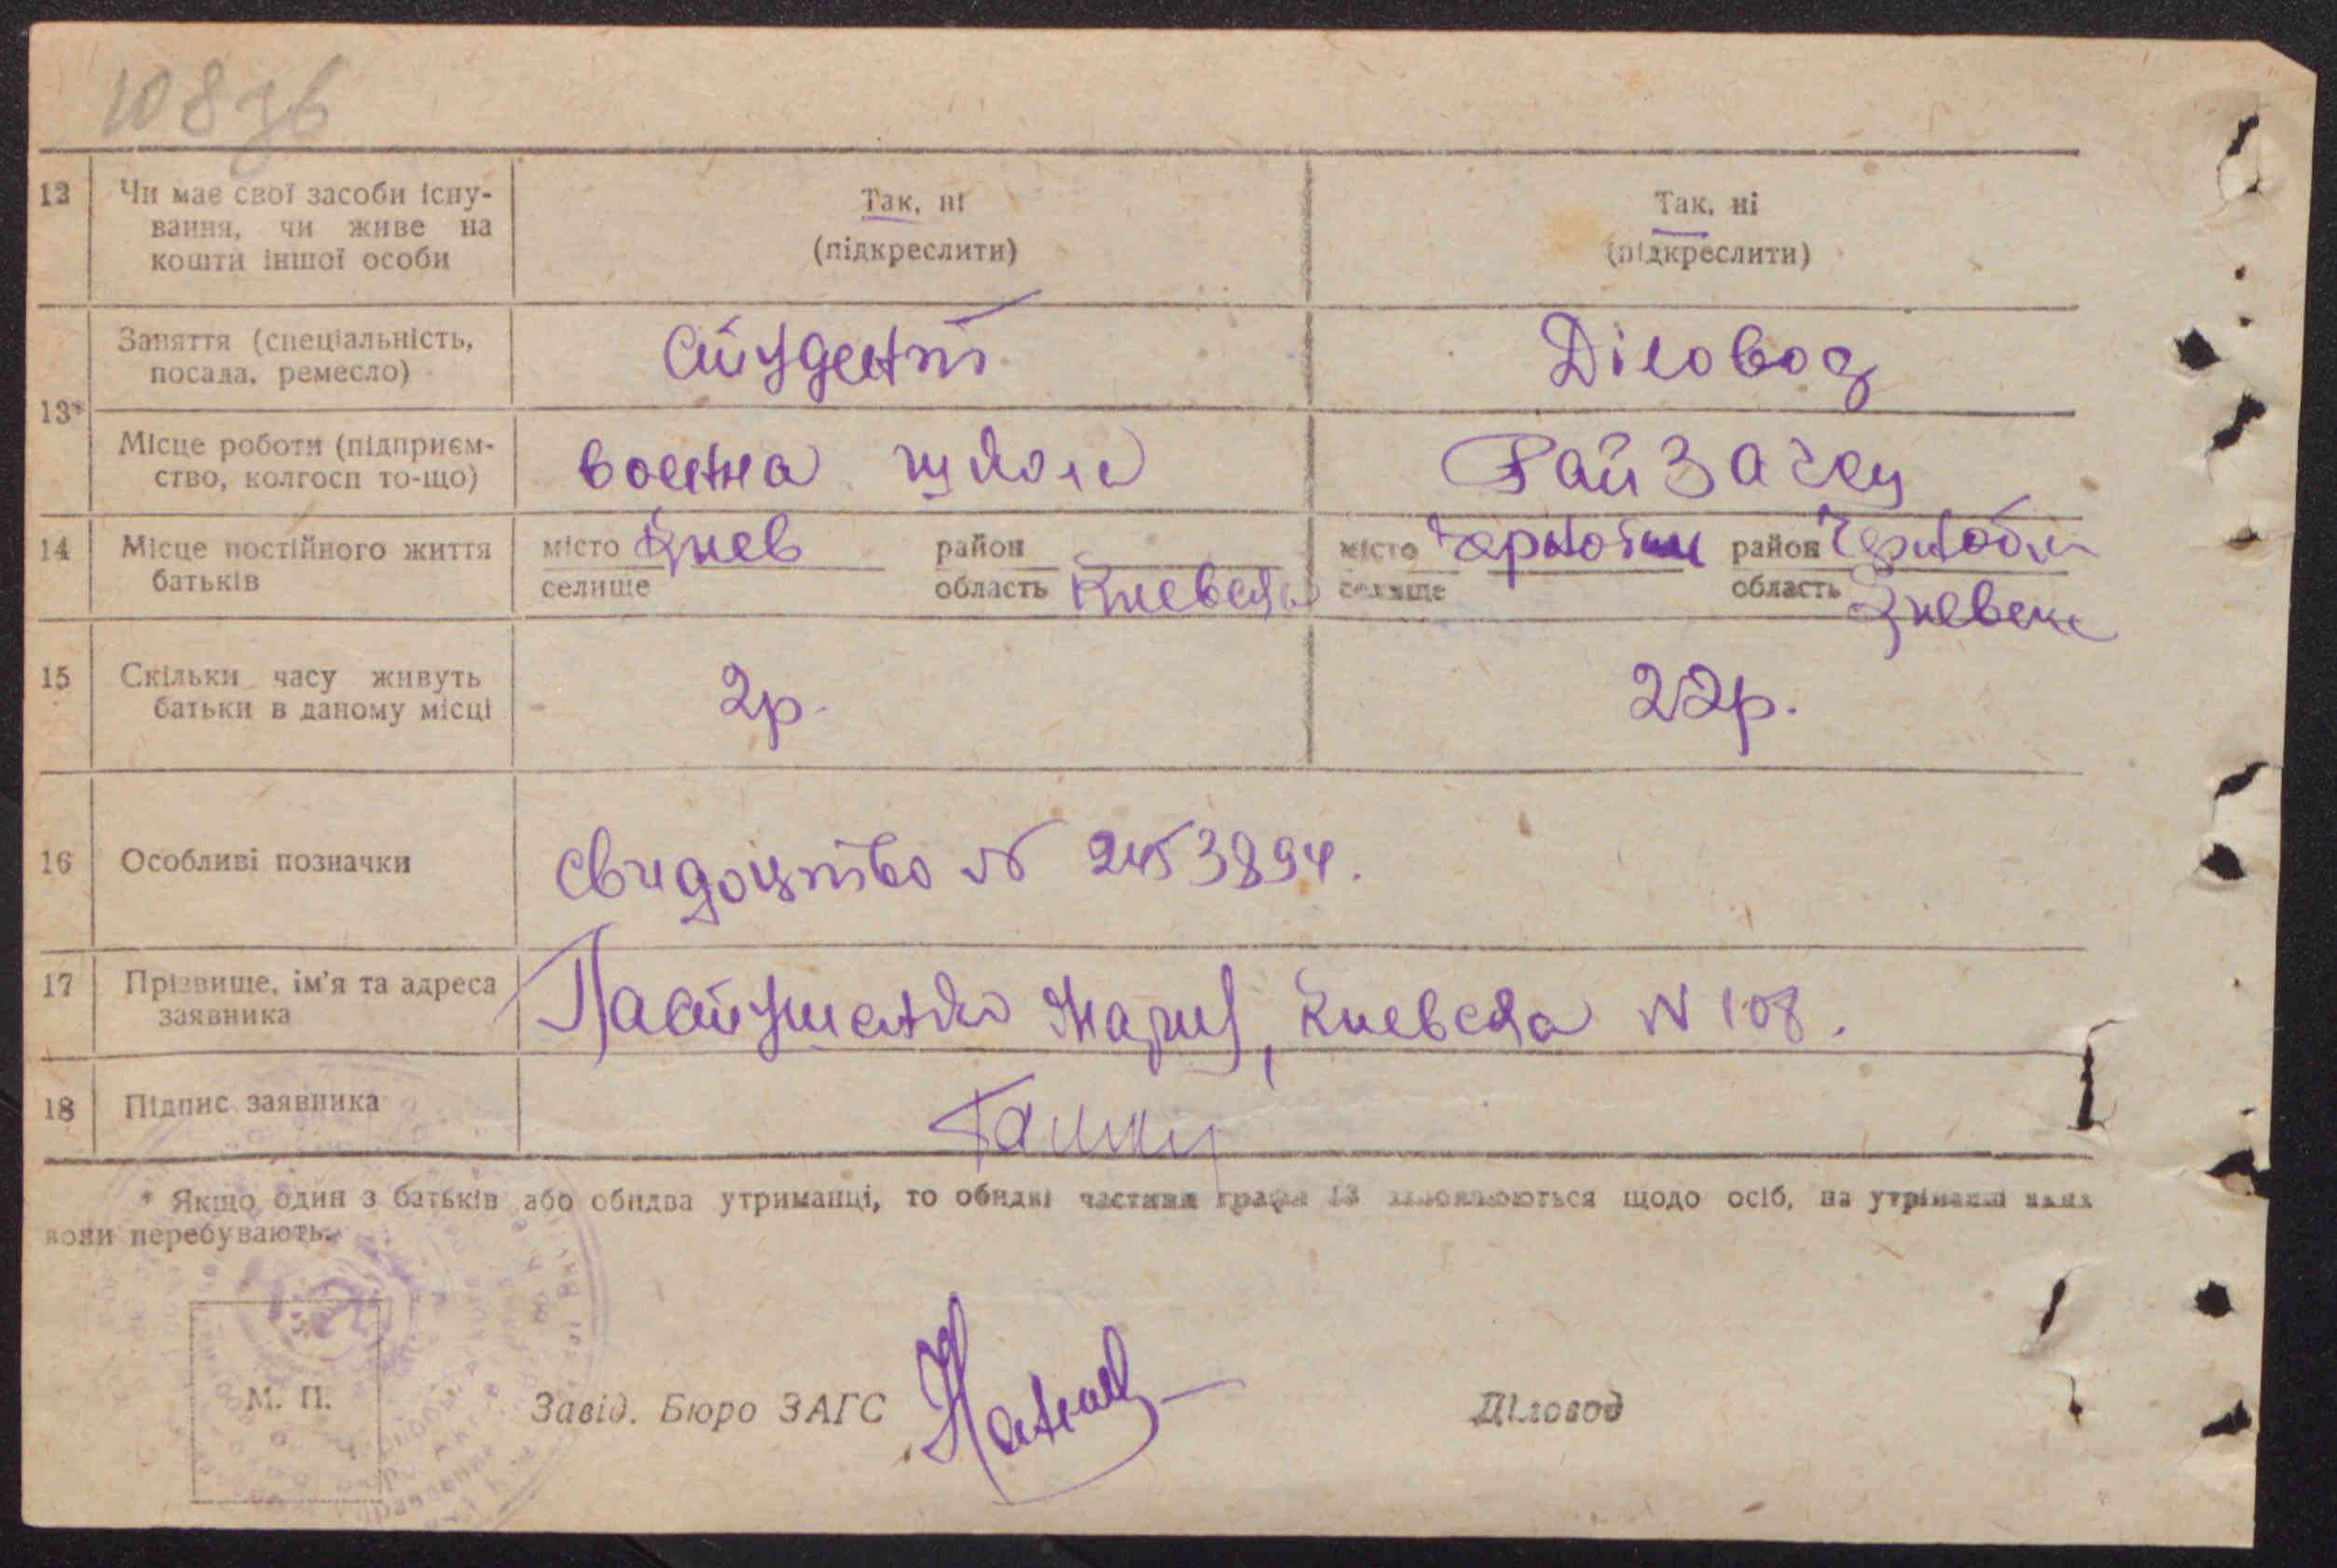 108 зв
12 Чи має свої засоби існу-
вання, чи живе на
кошти іншої особи
Так, ні
(підкреслити)
Так, ні
(підкреслити)
13*
Заняття (спеціальність,
посада, ремесло)
Студент
Діловод
Місце роботи (підприєм-
ство, колгосп то-що)
воєнна школа
14 Місце постійного життя
батьків
місто Киев район
селище область Киевска
місто Чорнобил район Чорнобил
селище область Киевск
15 Скільки часу живуть
батьки в даному місці
2р.
22р.
16 Особливі позначки
Свидоцтво № 2453894.
17 Прізвище, ім'я та адреса
заявника
Пастушенко Мария, Киевска N 108.
18 Підпис заявника
* Якщо один з батьків або обидва утриманці, то обидві частини графи 13 заповнюються щодо осіб, на утріманні яких
вони перебувають.
М. П.
Завід. Бюро ЗАГС
Діловод